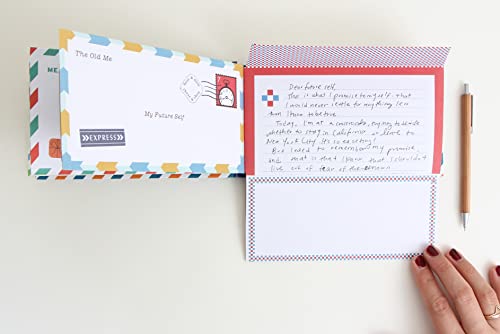 ME
The Old Me
My Future Self
EXPRESS
Dear future self,
This is what I promise to myself - that
I would never settle for anything less
than I know to be true.
Today, I'm at a crossroads, trying to decide
whether to stay in California or leave to
New York City. It's so exciting!
But I need to remember my promise
and that is that I know that I shouldn't
live out of fear of the unknown